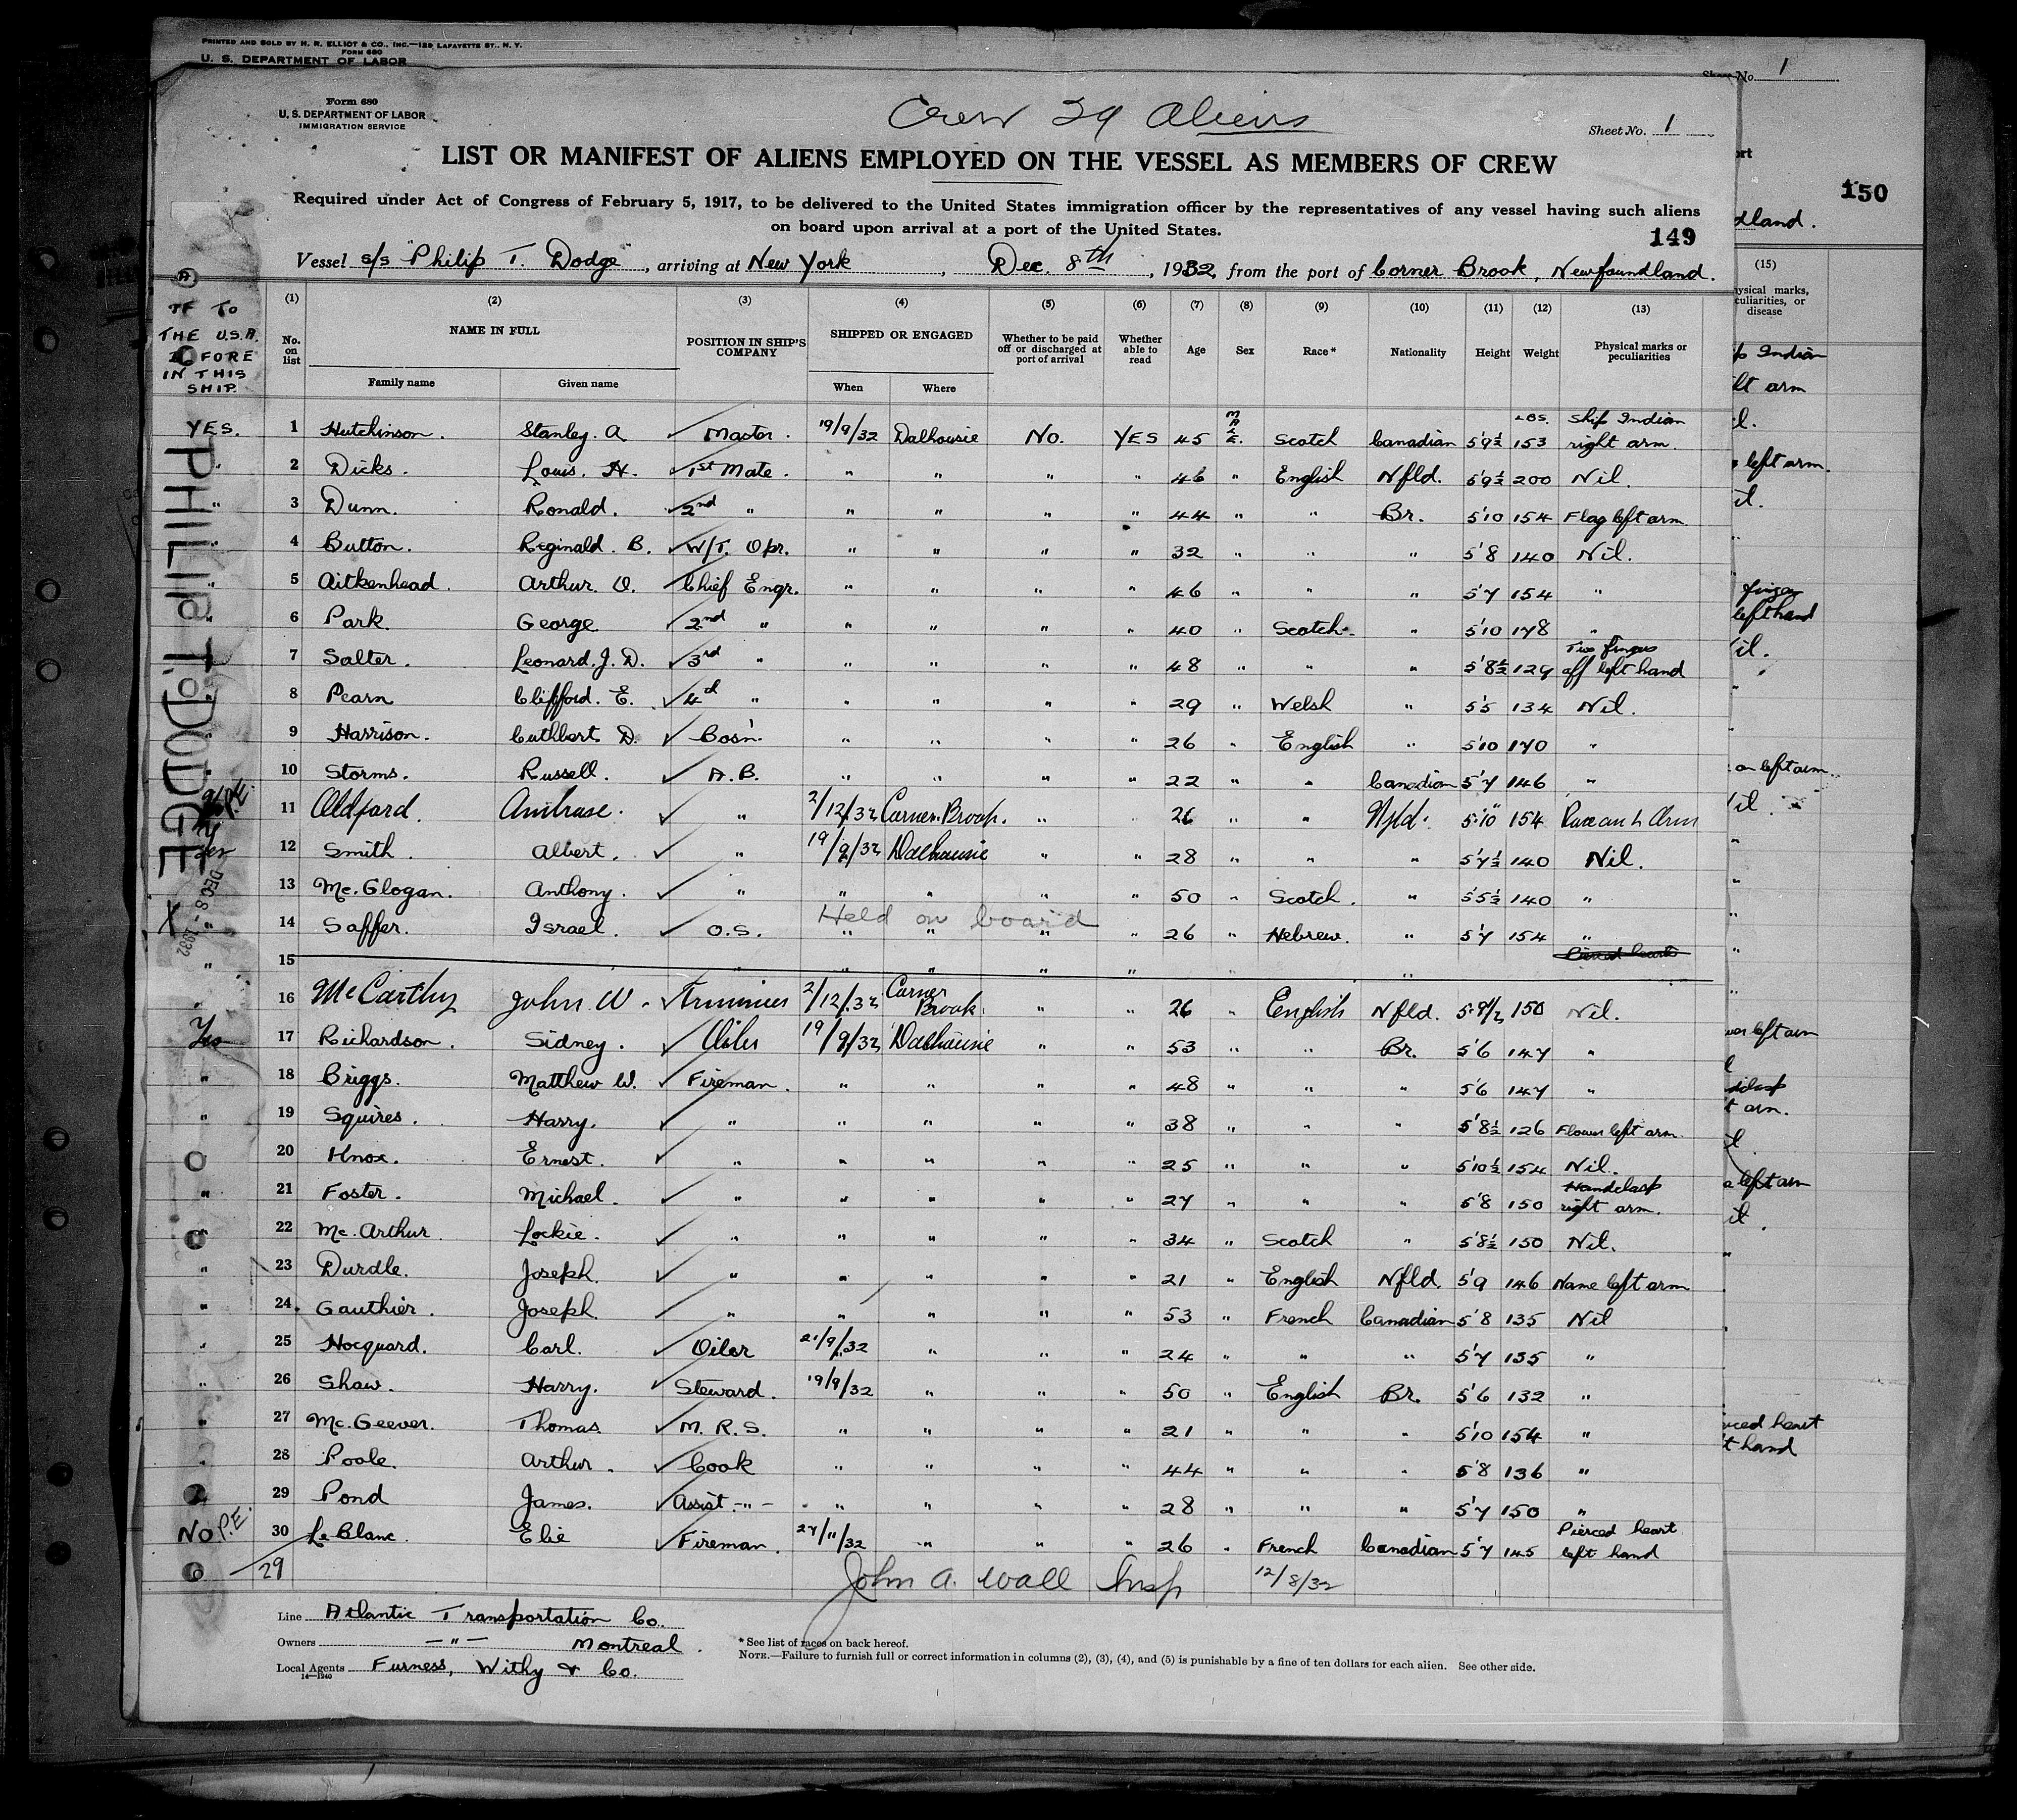 PRINTED AND SOLD BY H. R. ELLIOT & CO., INC.—129 LAFAYETTE ST., N. Y.
FORM 680
U. S. DEPARTMENT OF LABOR
No. 1
150
Form 680
U. S. DEPARTMENT OF LABOR
IMMIGRATION SERVICE
Crew 29 Aliens
Sheet No. 1
LIST OR MANIFEST OF ALIENS EMPLOYED ON THE VESSEL AS MEMBERS OF CREW
Required under Act of Congress of February 5, 1917, to be delivered to the United States immigration officer by the representatives of any vessel having such aliens
on board upon arrival at a port of the United States.
149
Vessel s/s "Philip T. Dodge", arriving at New York, Dec. 8th, 1932, from the port of Corner Brook, Newfoundland.
TO THE U.S.A. BEFORE IN THIS SHIP.
PHILIP T. DODGE
DEC 8 - 1932
(1) (2) (3) (4) (5) (6) (7) (8) (9) (10) (11) (12) (13)
No. on list NAME IN FULL POSITION IN SHIP'S COMPANY SHIPPED OR ENGAGED Whether to be paid off or discharged at port of arrival Whether able to read Age Sex Race* Nationality Height Weight Physical marks or peculiarities
Family name Given name When Where
YES. 1 Hutchinson. Stanley. A Master. 19/9/32 Dalhousie No. YES 45 MALE. Scotch Canadian 5'9½ LBS. 153 Ship Indian right arm.
" 2 Dicks. Louis. H. 1st Mate. " " " " 46 " English Nfld. 5'9½ 200 Nil.
" 3 Dunn. Ronald. 2nd " " " " " 44 " " Br. 5'10 154 Flag left arm
4 Button. Reginald. B. W/T. Opr. " " " " 32 " " " 5'8 140 Nil.
" 5 Aitkenhead. Arthur. O. Chief Engr. " " " " 46 " " " 5'7 154 "
" 6 Park. George 2nd " " " " " 40 " Scotch. " 5'10 178 "
7 Salter. Leonard. J. D. 3rd " " " " " 48 " " " 5'8½ 129 Two fingers off left hand
8 Pearn Clifford. E. 4d " " " " " 29 " Welsh " 5'5 134 Nil.
9 Harrison. Cuthbert. D. Bos'n. " " " " 26 " English " 5'10 170 "
10 Storms. Russell. A.B. " " " " 22 " " Canadian 5'7 146 "
11 Oldford. Ambrose. " 2/12/32 Corner Brook. " 26 " Nfld. 5'10" 154 L Arm
yes 12 Smith. Albert. " 19/9/32 Dalhousie " " 28 " " " 5'7½ 140 Nil.
13 Mc. Glogan. Anthony. " " " " " 50 " Scotch. " 5'5½ 140 "
X " 14 Saffer. Israel. O.S. " " " " 26 " Hebrew. " 5'7 154 "
Held on board
" 15 " " " " " " Pierced heart
" 16 McCarthy John W. Trimmer 2/12/32 Corner Brook. " " 26 " English Nfld. 5-9½ 150 Nil.
Yes 17 Richardson. Sidney. Oiler 19/9/32 Dalhousie " " 53 " " Br. 5'6 147 "
" 18 Briggs. Matthew W. Fireman. " " " " 48 " " " 5'6 147 "
" 19 Squires. Harry. " " " " " 38 " " " 5'8½ 126 Flower left arm.
20 Knox. Ernest. " " " " " 25 " " " 5'10½ 154 Nil.
" 21 Foster. Michael. " " " " " 27 " " " 5'8 150 Handclasp right arm.
22 Mc. Arthur Lockie. " " " " " 34 " Scotch " 5'8½ 150 Nil.
" 23 Durdle. Joseph. " " " " " 21 " English Nfld. 5'9 146 Name left arm
" 24 Gauthier. Joseph " " " " " 53 " French Canadian 5'8 135 Nil
" 25 Hocquard. Carl. Oiler 21/9/32 " " " 24 " " " 5'7 135 "
" 26 Shaw. Harry. Steward. 19/9/32 " " " 50 " English Br. 5'6 132 "
" 27 Mc. Geever. Thomas. M. R. S. " " " " 21 " " " 5'10 154 "
" 28 Poole. Arthur. Cook " " " " 44 " " " 5'8 136 "
29 Pond James. Assist. -"- " " " " 28 " " " 5'7 150 "
NO P.E. 30 Le Blanc. Elie Fireman. 27/11/32 " " " 26 " French Canadian 5'7 145 Pierced heart left hand
29 John A. Wall Insp 12/8/32
Line Atlantic Transportation Co.
Owners -"- Montreal.
Local Agents Furness, Withy & Co.
14—1240
* See list of races on back hereof.
NOTE.—Failure to furnish full or correct information in columns (2), (3), (4), and (5) is punishable by a fine of ten dollars for each alien. See other side.
(15)
disease
Indian
arm
left arm.
finger
left hand
on left arm.
left arm
arm.
left arm
heart
hand